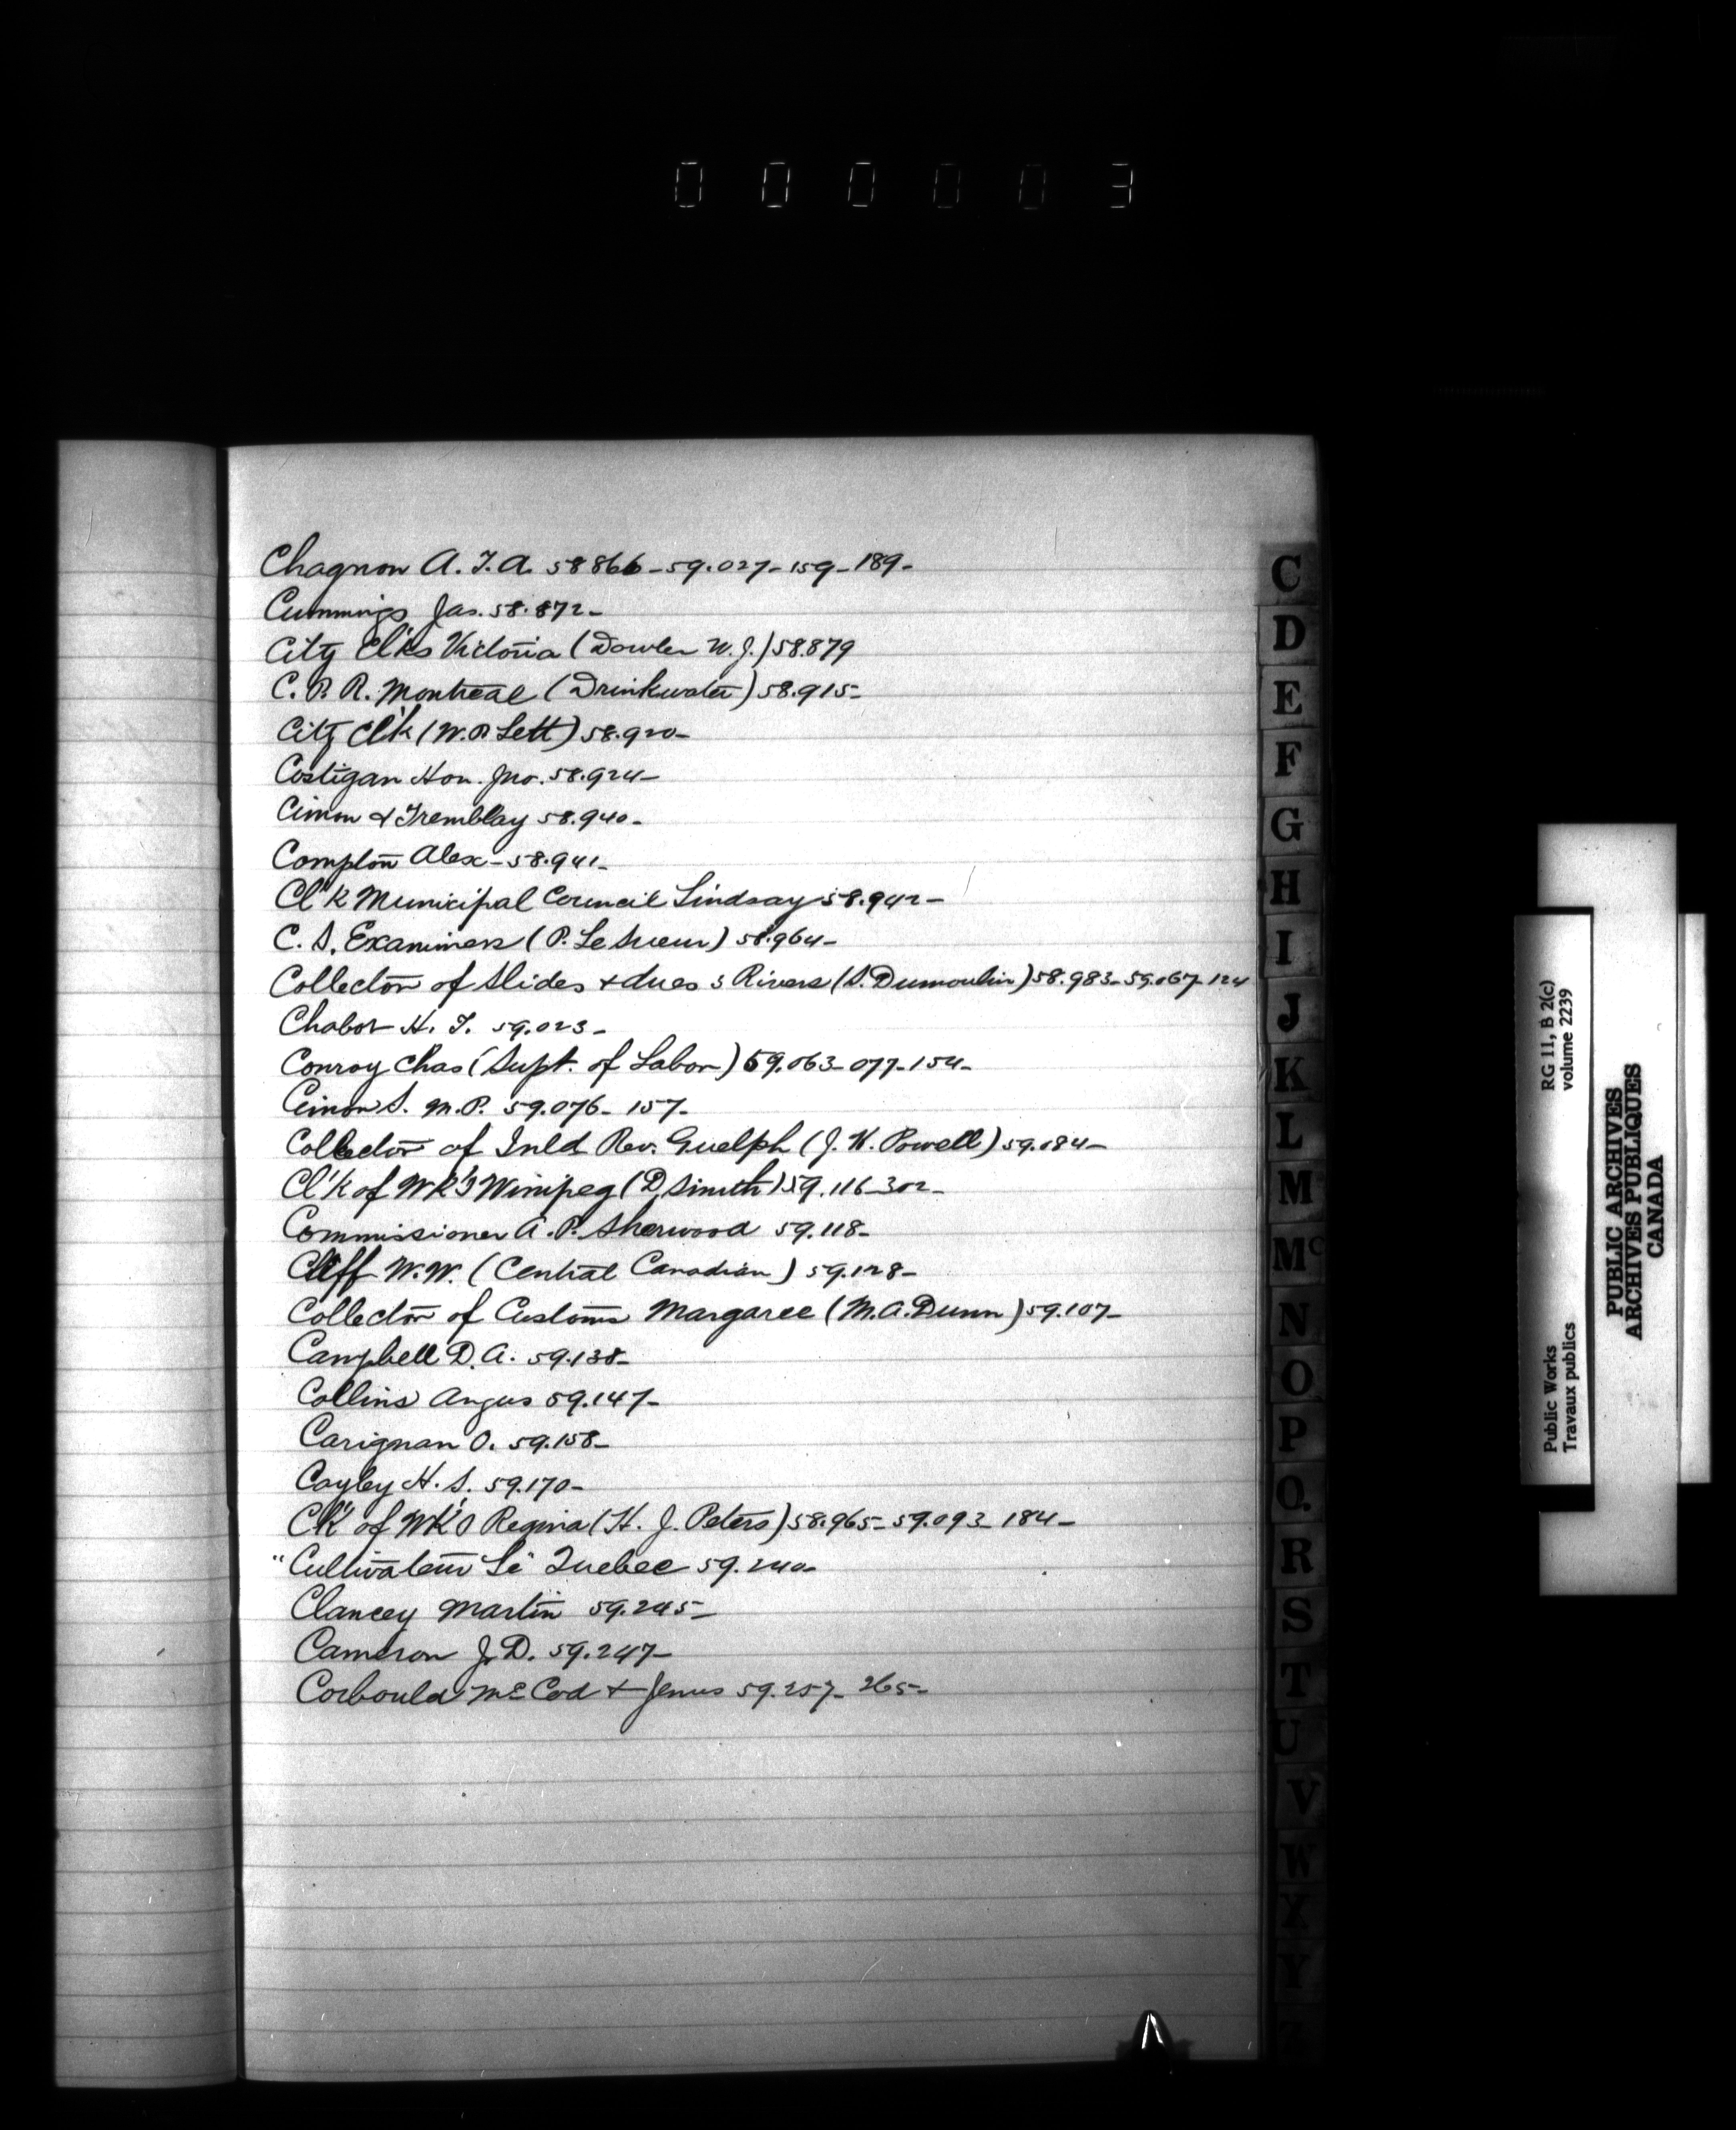 000003
Chagnon A. T. A. 58866-59.027-159-189-
Cummings Jas. 58.872-
City Cl'ks Victoria (Dowler W. J.) 58.879
C. P. R. Montreal (Drinkwater) 58.915-
City Cl'k (W. P. Lett) 58.920-
Costigan Hon. Jno. 58.924-
Cimon & Tremblay 58.940-
Compton Alex - 58.941-
Cl'k Municipal Council Lindsay 58.942-
C. S. Examiners (P. LeSueur) 58.964-
Collector of Slides & dues 3 Rivers (S. Dumoulin) 58.983-59.067-124
Chabot H. T. 59.023-
Conroy Chas (Supt. of Labor) 59.063-077-154-
Cimon S. M.P. 59.076-157-
Collector of Inld Rev. Guelph (J. H. Powell) 59.084-
Cl'k of W'K's Winipeg (D. Smith) 59.116-302-
Commissioner A. P. Sherwood 59.118-
Cliff W. W. (Central Canadian) 59.128-
Collector of Customs Margaree (M. A. Dunn) 59.107-
Campbell D. A. 59.138-
Collins Angus 59.147-
Carignan O. 59.158-
Cayley H. S. 59.170-
C'K of W'K's Regina (H. J. Peters) 58.965-59.093-184-
"Cultivateur Le" Quebec 59.240-
Clancey Martin 59.245-
Cameron J. D. 59.247-
Corbould McCod & Jenns 59.257-265-
C
D
E
F
G
H
I
J
K
L
M
Mc
N
O
P
Q.
R
S
T
U
V
W
X
Y
Public Works
Travaux publics
RG 11, B 2(c)
volume 2239
PUBLIC ARCHIVES
ARCHIVES PUBLIQUES
CANADA